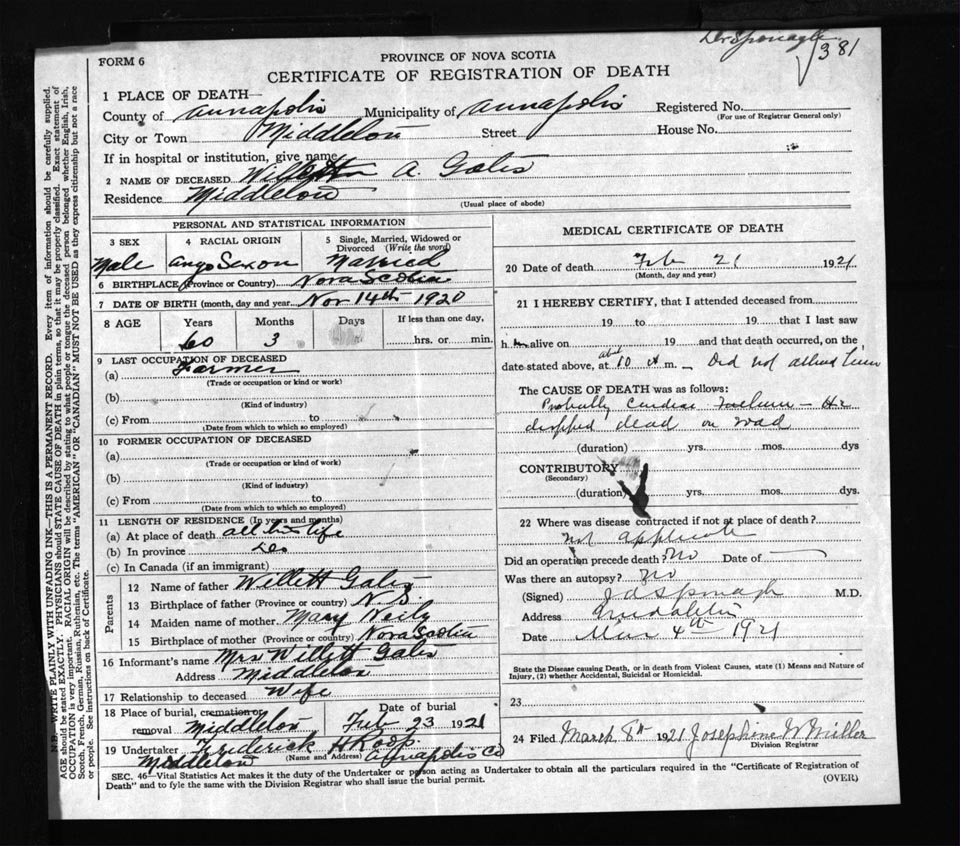 Dr Sponagle
381
FORM 6
PROVINCE OF NOVA SCOTIA
CERTIFICATE OF REGISTRATION OF DEATH
1 PLACE OF DEATH—
County of Annapolis Municipality of Annapolis Registered No.
(For use of Registrar General only)
City or Town Middleton Street House No.
If in hospital or institution, give name
2 NAME OF DECEASED A. Gates
Residence Middleton
(Usual place of abode)
PERSONAL AND STATISTICAL INFORMATION
3 SEX 4 RACIAL ORIGIN 5 Single, Married, Widowed or Divorced (Write the word)
Male Anglo Saxon Married
6 BIRTHPLACE (Province or Country) Nova Scotia
7 DATE OF BIRTH (month, day and year) Nov 14th 1920
8 AGE Years Months Days If less than one day,
60 3 hrs. or min.
9 LAST OCCUPATION OF DECEASED
(a) Farmer
(Trade or occupation or kind or work)
(b)
(Kind of industry)
(c) From to
(Date from which to which so employed)
10 FORMER OCCUPATION OF DECEASED
(a)
(Trade or occupation or kind of work)
(b)
(Kind of industry)
(c) From to
(Date from which to which so employed)
11 LENGTH OF RESIDENCE (In years and months)
(a) At place of death all his life
(b) In province Do
(c) In Canada (if an immigrant)
Parents
12 Name of father Willett Gates
13 Birthplace of father (Province or country) N.S.
14 Maiden name of mother Mary
15 Birthplace of mother (Province or country) Nova Scotia
16 Informant's name Mrs Willett Gates
Address Middleton
17 Relationship to deceased Wife
18 Place of burial, cremation or removal Middleton Date of burial Feb 23 1921
19 Undertaker Frederick H Roop
(Name and Address)
Middleton Annapolis Co
MEDICAL CERTIFICATE OF DEATH
20 Date of death Feb 21 1921
(Month, day and year)
21 I HEREBY CERTIFY, that I attended deceased from
19 to 19 that I last saw
h im alive on 19 and that death occurred, on the
date stated above, at about 10 A m. — Did not attend him
The CAUSE OF DEATH was as follows:
Probably Cardiac Failure — He
dropped dead on road
(duration) yrs. mos. dys
CONTRIBUTORY
(Secondary)
(duration) yrs. mos. dys.
22 Where was disease contracted if not at place of death?
not applicable
Did an operation precede death? No Date of
Was there an autopsy? No
(Signed) J A Sponagle M.D.
Address Middleton
Date Mar 4th 1921
State the Disease causing Death, or in death from Violent Causes, state (1) Means and Nature of
Injury, (2) whether Accidental, Suicidal or Homicidal.
23
24 Filed March 8th 1921 Josephine W Miller
Division Registrar
SEC. 46—Vital Statistics Act makes it the duty of the Undertaker or person acting as Undertaker to obtain all the particulars required in the "Certificate of Registration of
Death" and to fyle the same with the Division Registrar who shall issue the burial permit.
(OVER)
N.B.—WRITE PLAINLY WITH UNFADING INK—THIS IS A PERMANENT RECORD. Every item of information should be carefully supplied.
AGE should be stated EXACTLY. PHYSICIANS should STATE CAUSE OF DEATH in plain terms, so that it may be properly classified. Exact statement of
OCCUPATION is very important. RACIAL ORIGIN will be described by stating to what people or tongue the deceased person belonged whether English, Irish,
Scotch, French, German, Russian, Ruthenian, etc. The terms "AMERICAN" OR "CANADIAN" MUST NOT BE USED as they express citizenship but not a race
or people. See instructions on back of Certificate.